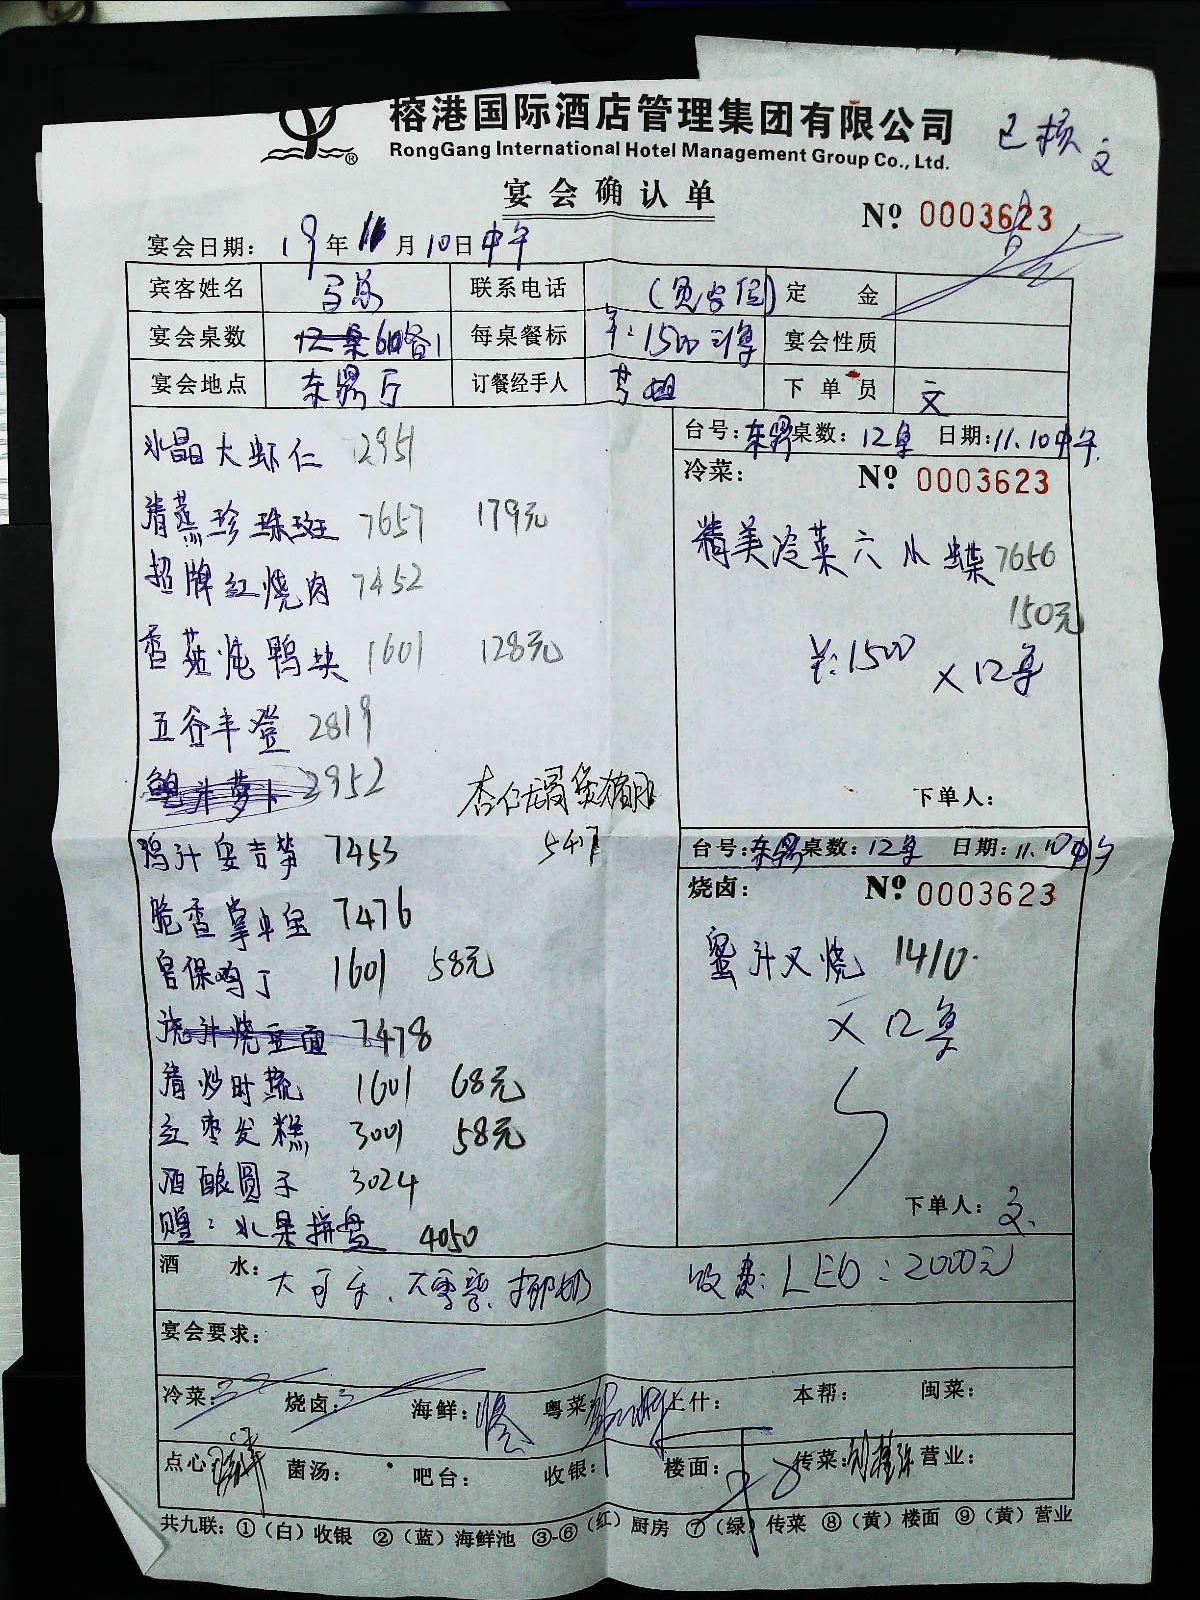 榕港国际酒店管理集团有限公司
RongGang International Hotel Management Group Co., Ltd.
已核 文
宴会确认单
№ 0003623
宴会日期: 19年11月10日中午
宾客姓名 联系电话 定金
宴会桌数 每桌餐标 ¥:1500 宴会性质
宴会地点 东鼎厅 订餐经手人 下单员 文
台号:东鼎 桌数:12桌 日期:11.10中午
冷菜: № 0003623
精美冷菜六小碟 7656
150元
¥:1500 ×12桌
下单人:
水晶大虾仁 2951
清蒸珍珠斑 7657 179元
招牌红烧肉 7452
香菇炖鸭块 1601 128元
五谷丰登 2819
鲍汁萝卜 2952
5417
鸡汁安吉笋 7453
脆香掌中宝 7476
宫保鸡丁 1601 58元
浇汁烧豆面 7478
清炒时蔬 1601 68元
红枣发糕 3001 58元
酒酿圆子 3024
赠:水果拼盘 4050
台号:东鼎 桌数:12桌 日期:11.10中午
烧卤: № 0003623
蜜汁叉烧 1410
×12桌
下单人: 文
酒水: 大可乐、大雪碧、椰奶 收费:LED:2000元
宴会要求:
冷菜: 烧卤: 海鲜: 粤菜: 上什: 本帮: 闽菜:
点心: 菌汤: 吧台: 收银: 楼面: 传菜: 营业:
共九联:①(白)收银 ②(蓝)海鲜池 ③-⑥(红)厨房 ⑦(绿)传菜 ⑧(黄)楼面 ⑨(黄)营业